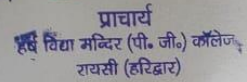 प्राचार्य
हर्ष विद्या मन्दिर (पी० जी०) कॉलेज
रायसी (हरिद्वार)